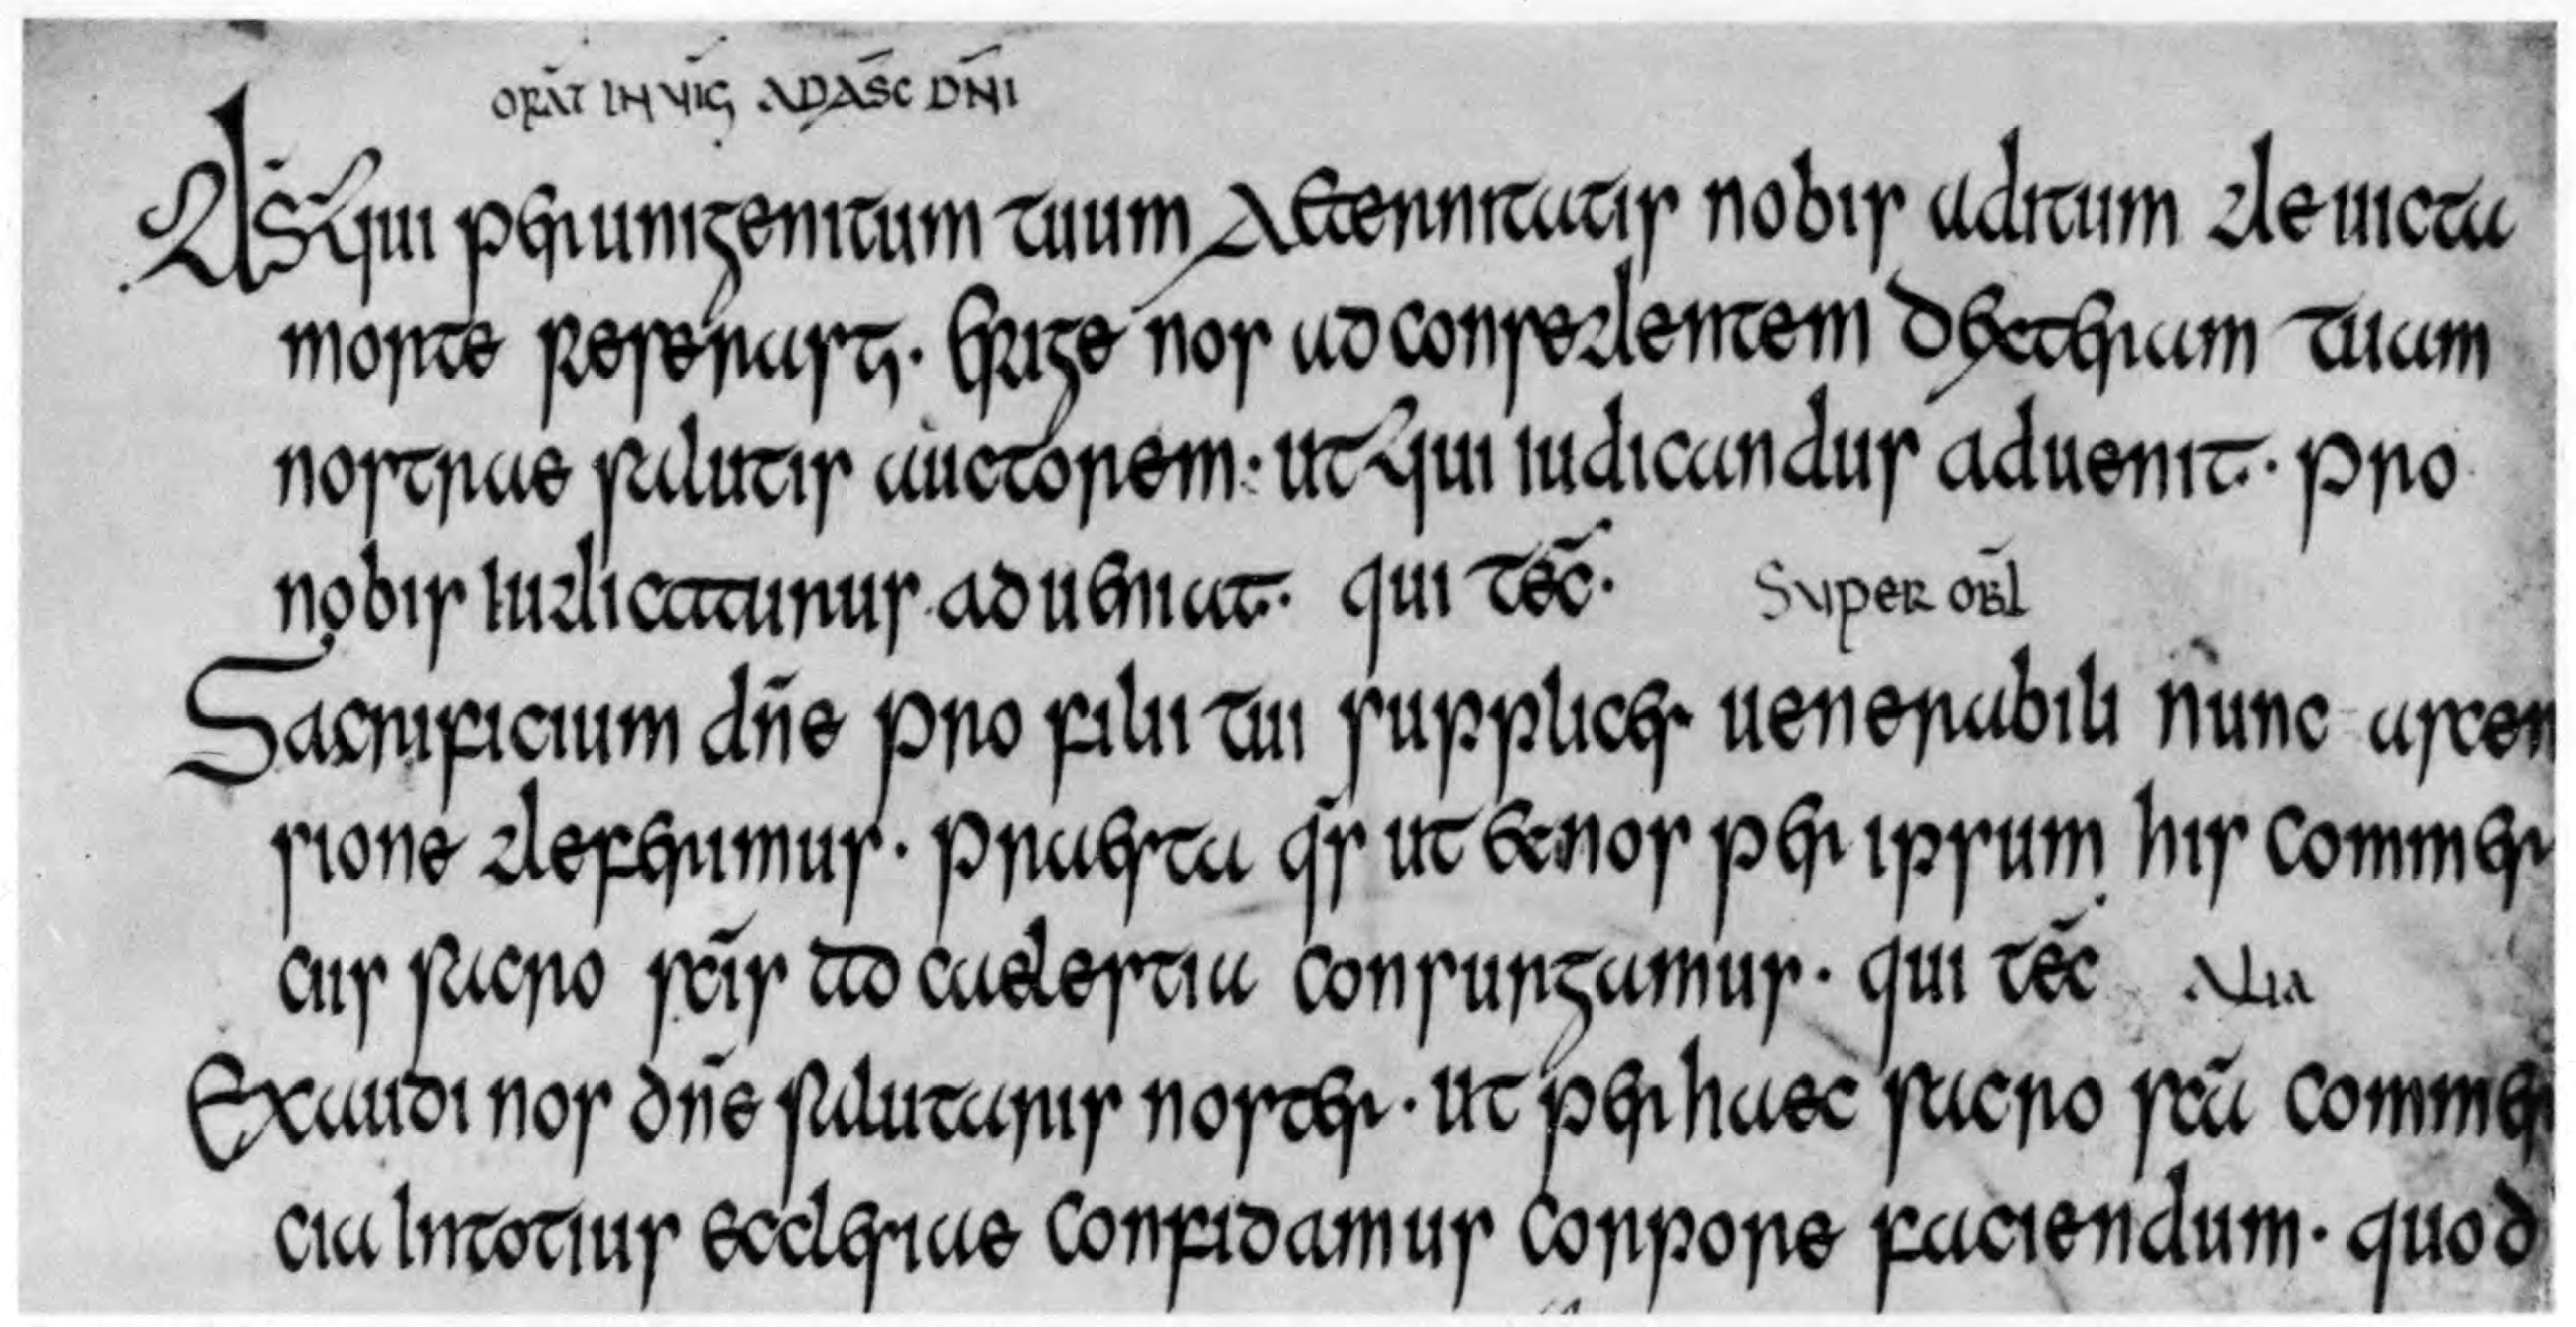 ORAT̄ IN VIḠ AD AS̄C DN̄I
D̄S qui per unigenitum tuum Aeternitatis nobis aditum deuicta
morte reserasti. Erige nos ad consedentem dexteram tuam
nostrae salutis auctorem: ut qui iudicandus aduenit. pro
nobis Iudicaturus adueniat. qui tec̄. Super obl̄
Sacrificium dn̄e pro filii tui supplices uenerabili nunc ascen
sione deferimus. praesta qs̄ ut et nos per ipsum his commer
ciis sacro sc̄is ad caelestia consurgamus. qui tec̄ Alia
Exaudi nos dn̄e salutaris noster. Ut per haec sacro sc̄a commer
cia In totius ecclesiae Confidamus Corpore faciendum. quod